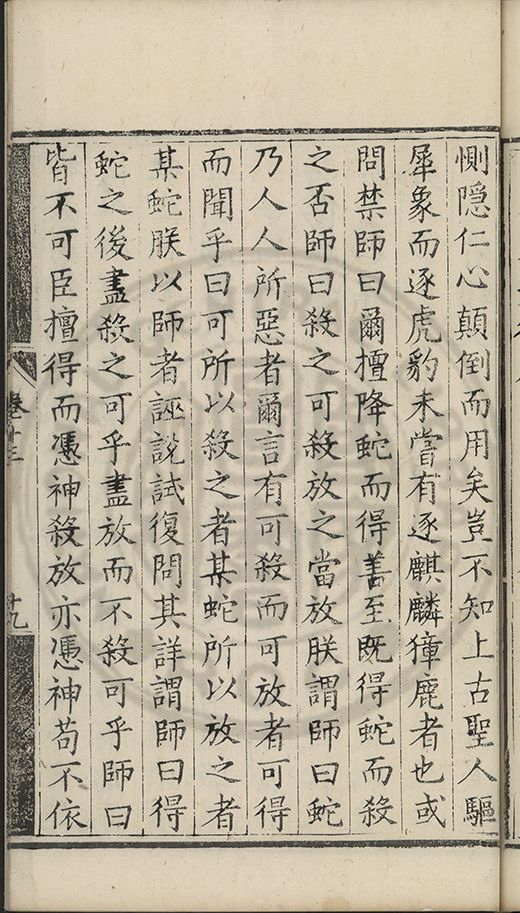 惻隱仁心顛倒而用矣豈不知上古聖人驅
犀象而逐虎豹未嘗有逐麒麟獐鹿者也或
問禁師曰爾擅降蛇而得善至既得蛇而殺
之否師曰殺之可殺放之當放朕謂師曰蛇
乃人人所惡者爾言有可殺而可放者可得
而聞乎曰可所以殺之者某蛇所以放之者
某蛇朕以師者誣說試復問其詳謂師曰得
蛇之後盡殺之可乎盡放而不殺可乎師曰
皆不可臣擅得而憑神殺放亦憑神苟不依
卷十三
廿九